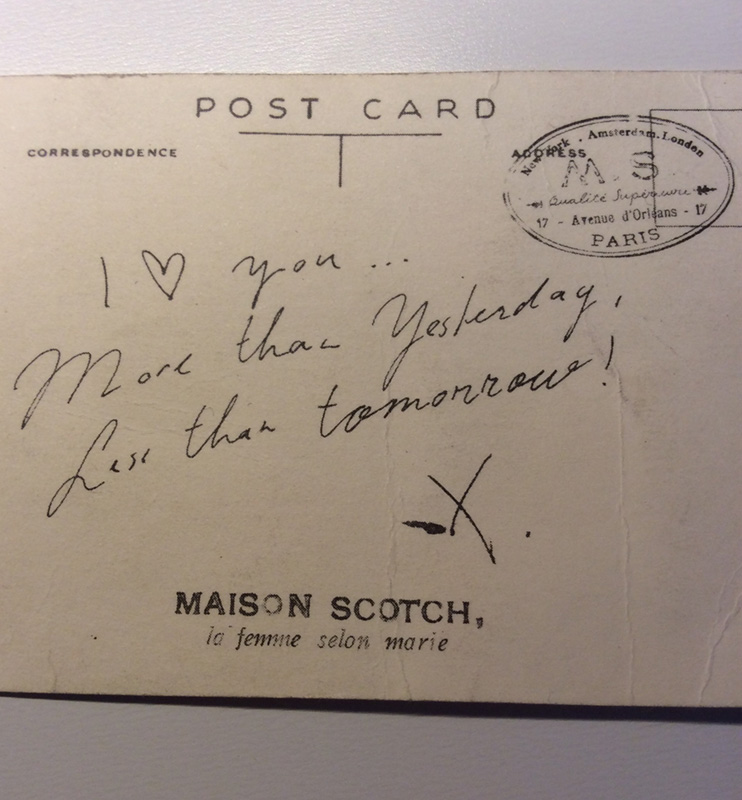 POST CARD
CORRESPONDENCE
ADDRESS
New York . Amsterdam . London
M. S
Qualité Supérieure
17 - Avenue d'Orléans - 17
PARIS
I ♡ you ...
More than Yesterday,
Less than tomorrow!
X.
MAISON SCOTCH,
la femme selon marie